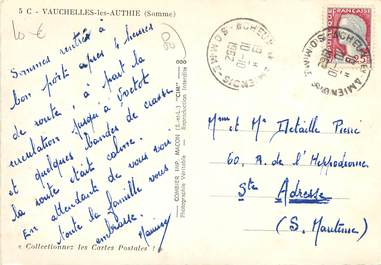 5 C - VAUCHELLES-les-AUTHIE (Somme)
10 €
Sommes rentrés à
bon port après 4 heures
de route, à part la
circulation jusqu'à Yvetot
et quelques bandes de crasse
la route était calme.
En attendant de vous voir
toute la famille vous
embrasse.
« Collectionnez les Cartes Postales ! »
COMBIER IMP. MACON (S.-et-L.) "CIM"
Photographie Véritable - Reproduction Interdite
FRANCAISE
Mme et Mr Delaille Pierre
60, R. de l'Hippodrome
Ste Adresse
(S. Maritime)